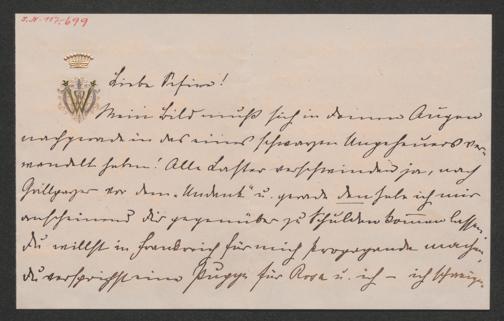 J.N. 117.699
Liebe Pepino!
Mein Bild muß sich in deinen Augen
nachgerade in das eines schwarzen Ungeheuers ver-
wandelt haben! Alle Laster verschwinden ja, nach
Grillparzer vor dem „Undank“ u. gerade den habe ich mir
anscheinend dir gegenüber zu Schulden kommen lassen.
Du willst in Frankreich für mich Propaganda machen,
du versprichst eine Puppe für Rosa u. ich – ich schweige